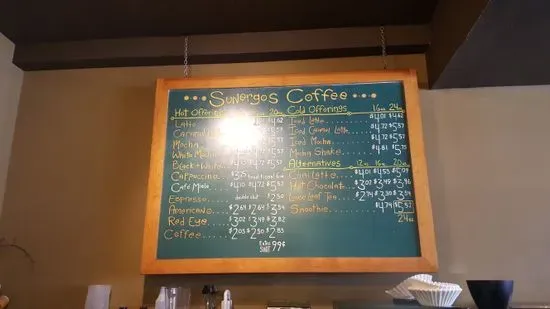 Sunergos Coffee
Hot Offerings 20oz
Latte $4.62
Caramel
Mocha $5.57
White Mocha
Black & White
Cappuccino $3.75 traditional 6oz
Café Miele $4.10 $4.72 $5.57
Espresso double shot $2.50
Americano $2.69 $2.69 $3.54
Red Eye $3.02 $3.49 $3.82
Coffee $2.03 $2.50 $2.83
Extra Shot 99¢
Cold Offerings 16oz 24oz
Iced Latte $4.01 $4.62
Iced Caramel Latte $4.72 $5.57
Iced Mocha $4.72 $5.57
Mocha Shake $4.81 $5.75
Alternatives 12oz 16oz 20oz
Chai Latte $4.01 $4.53 $5.09
Hot Chocolate $3.07 $3.49 $3.96
Loose Leaf Tea $2.74 $3.30 $3.54
Smoothie $4.74 $5.57
24oz